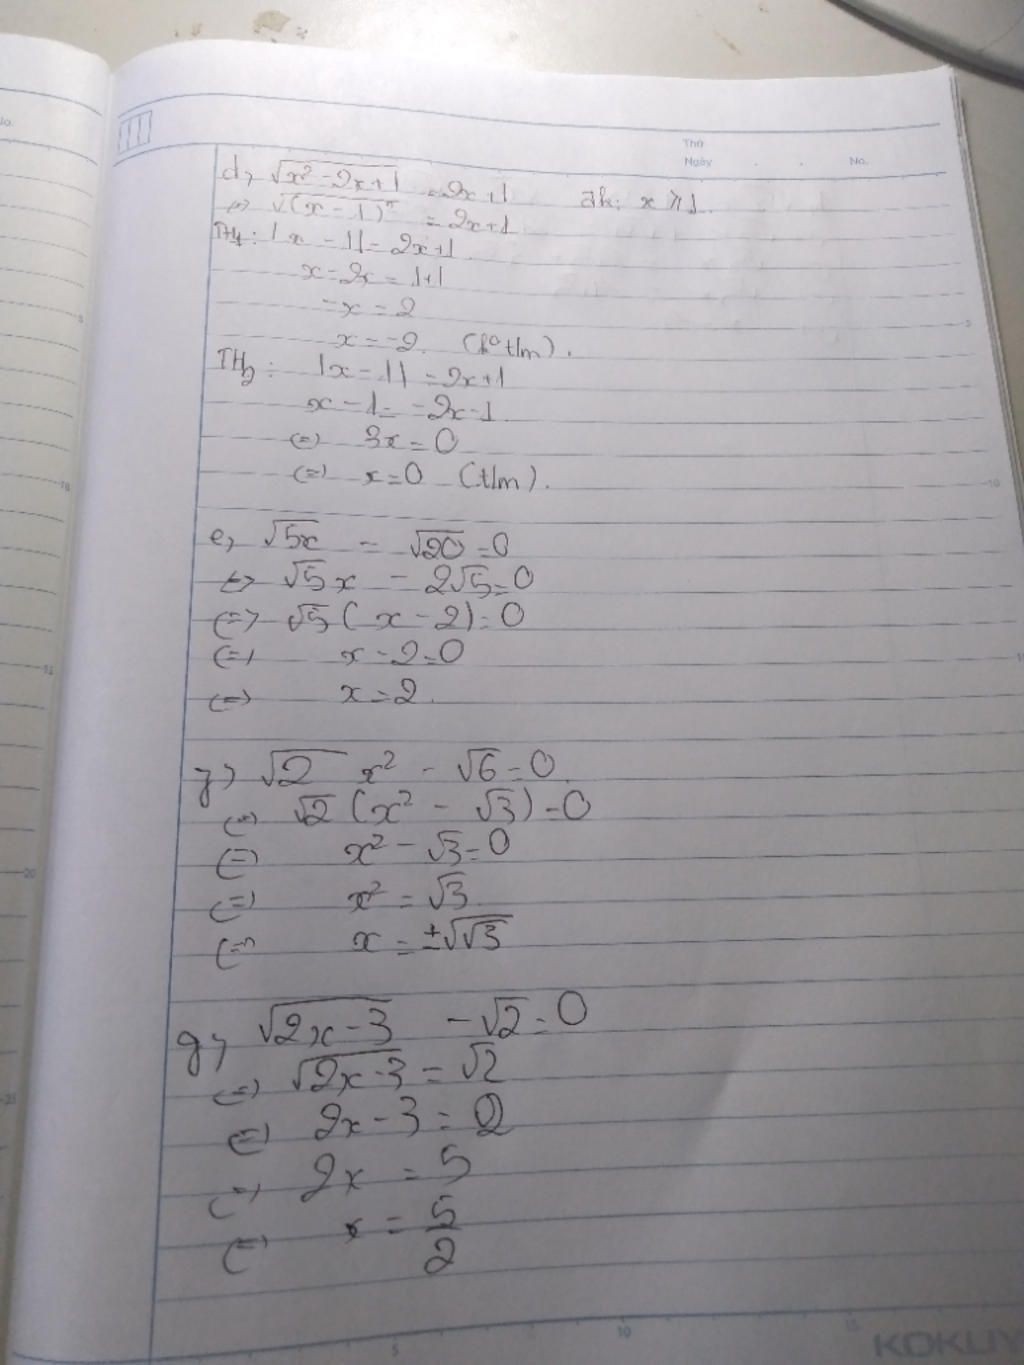 Thứ
Ngày . . No.
d, √(x² - 2x + 1) = 2x + 1 đk: x ⩾ 1
⇔ √(x - 1)² = 2x + 1
TH₁: |x - 1| = 2x + 1
x - 2x = 1 + 1
-x = 2
x = -2. (k° t/m).
TH₂: |x - 1| = 2x + 1
x - 1 = -2x - 1
(=) 3x = 0
(=) x = 0 (t/m).
e, √5x - √20 = 0
⇔ √5x - 2√5 = 0
⇔ √5(x - 2) = 0
(=) x - 2 = 0
(=) x = 2.
√2 x² - √6 = 0
(=) √2(x² - √3) = 0
(=) x² - √3 = 0
(=) x² = √3
(=) x = ±√√3
g, √(2x - 3) - √2 = 0
(=) √(2x - 3) = √2
(=) 2x - 3 = 2
(=) 2x = 5
(=) x = 5/2
KOKUY